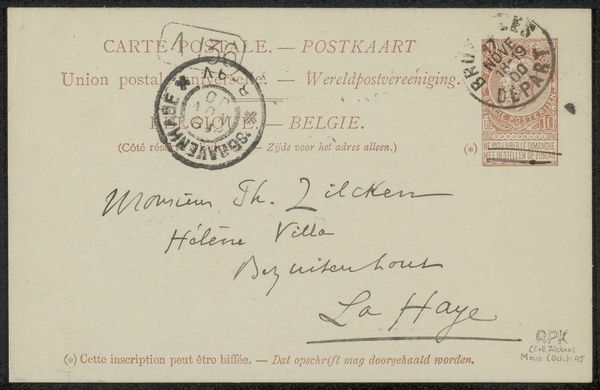 CARTE POSTALE. — POSTKAART
Union postale universelle. — Wereldpostvereeniging.
BELGIQUE. — BELGIE.
(Côté rés Zijde voor het adres alleen.) (*)
1/30
'SGRAVENHAGE
BRUXELLES
17
NOVE
18-19
00
DÉPART
10
NE PAS LIVRER LE DIMANCHE
NIET BESTELLEN OP ZONDAG
Monsieur Ph. Zilcken
Hélène Villa
Bezuitenhout
La Haye
(*) Cette inscription peut être biffée. — Dat opschrift mag doorgehaald worden.
RPK
(Coll. Zilcken)
Maus (Oct.): 45